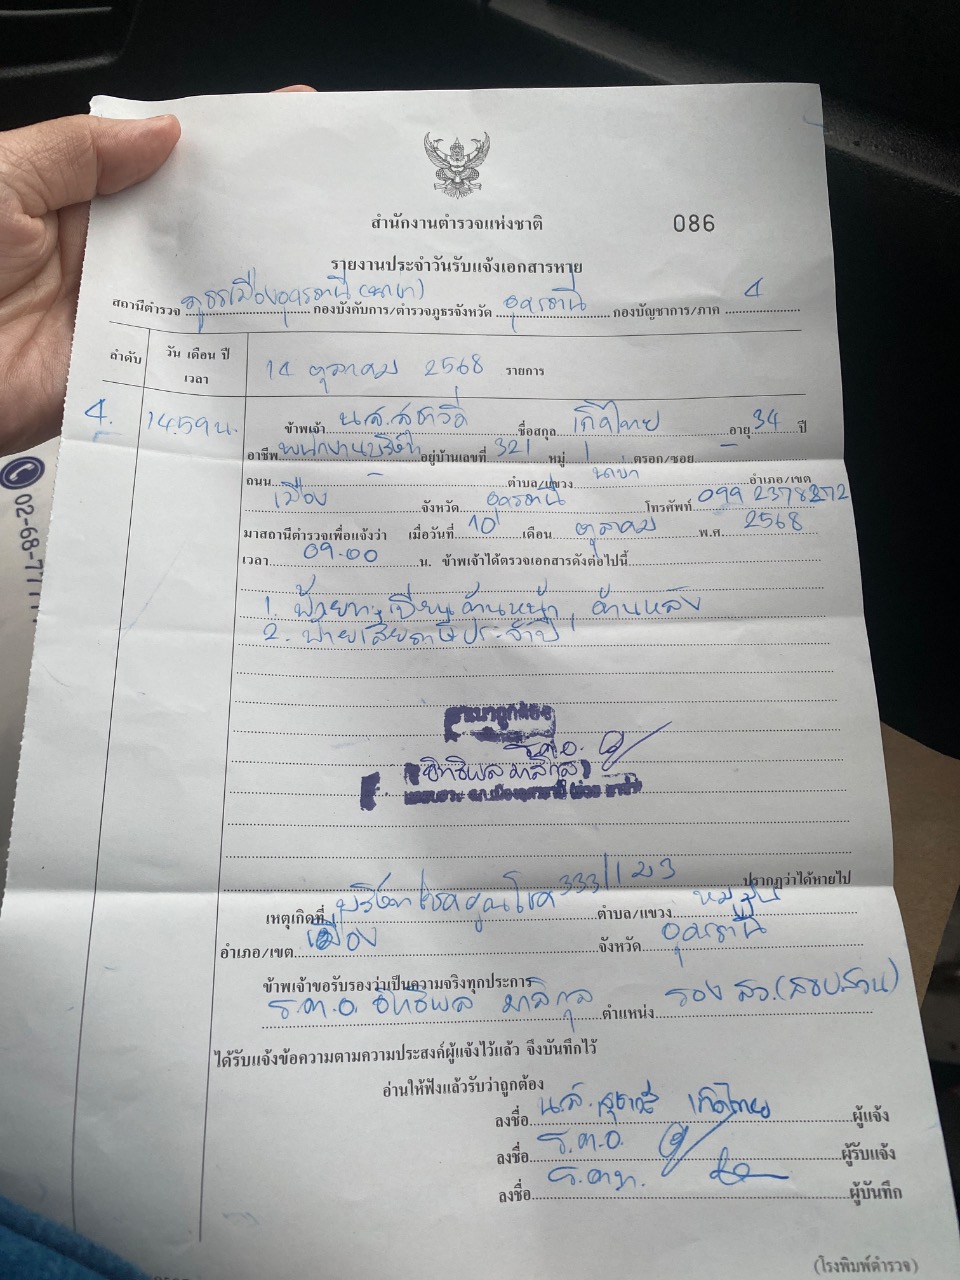 สำนักงานตำรวจแห่งชาติ
086
รายงานประจำวันรับแจ้งเอกสารหาย
สถานีตำรวจ ภูธรเมืองอุดรธานี (นาข่า) กองบังคับการ/ตำรวจภูธรจังหวัด อุดรธานี กองบัญชาการ/ภาค 4
ลำดับ วัน เดือน ปี เวลา 14 ตุลาคม 2568 รายการ
4. 14.59 น. ข้าพเจ้า น.ส. ชื่อสกุล เกิดไทย อายุ 34 ปี
อาชีพ พนักงานบริษัท อยู่บ้านเลขที่ 321 หมู่ 1 ตรอก/ซอย -
ถนน - ตำบล/แขวง นาข่า อำเภอ/เขต
เมือง จังหวัด อุดรธานี โทรศัพท์ 099 2378272
มาสถานีตำรวจเพื่อแจ้งว่า เมื่อวันที่ 10 เดือน ตุลาคม พ.ศ. 2568
เวลา 09.00 น. ข้าพเจ้าได้ตรวจเอกสารดังต่อไปนี้
1. ป้ายทะเบียนด้านหน้า, ด้านหลัง
2. ป้ายเสียภาษีประจำปี
สำเนาถูกต้อง
ร.ต.อ.
(อิทธิพล มาลิกุล)
ปรากฏว่าได้หายไป
เหตุเกิดที่ บริษัท 333/1 ม3 ตำบล/แขวง หมูม่น
อำเภอ/เขต เมือง จังหวัด อุดรธานี
ข้าพเจ้าขอรับรองว่าเป็นความจริงทุกประการ
ร.ต.อ. อิทธิพล มาลิกุล ตำแหน่ง รอง สว.(สอบสวน)
ได้รับแจ้งข้อความตามความประสงค์ผู้แจ้งไว้แล้ว จึงบันทึกไว้
อ่านให้ฟังแล้วรับว่าถูกต้อง
ลงชื่อ น.ส. เกิดไทย ผู้แจ้ง
ลงชื่อ ร.ต.อ. ผู้รับแจ้ง
ลงชื่อ ผู้บันทึก
(โรงพิมพ์ตำรวจ)
02-68-777